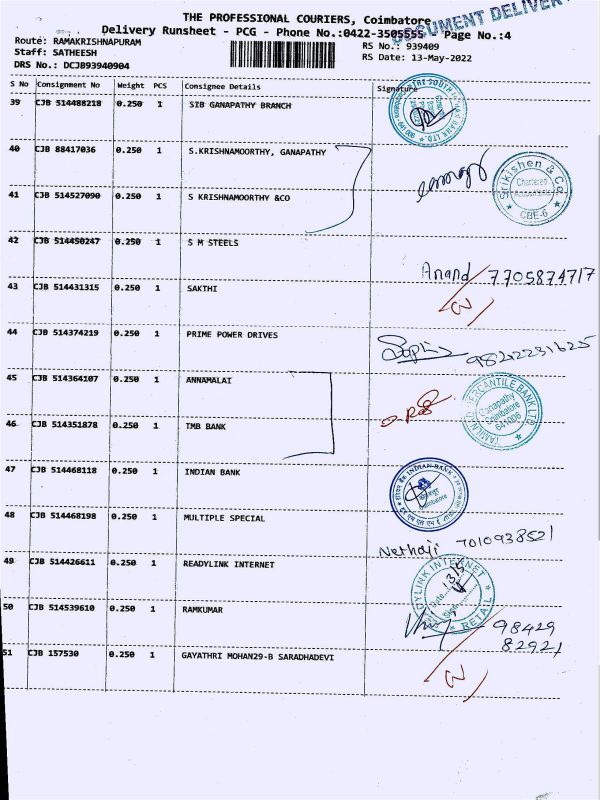 THE PROFESSIONAL COURIERS, Coimbatore
DOCUMENT DELIVERY
Delivery Runsheet - PCG - Phone No.:0422-3505555 - Page No.:4
Route: RAMAKRISHNAPURAM RS No.: 939409
Staff: SATHEESH RS Date: 13-May-2022
DRS No.: DCJB93940904
S No Consignment No Weight PCS Consignee Details Signature
39 CJB 514488218 0.250 1 SIB GANAPATHY BRANCH
40 CJB 88417036 0.250 1 S.KRISHNAMOORTHY, GANAPATHY
Srikishen & Co.
Chartered
Accountants
CBE-6
41 CJB 514527090 0.250 1 S KRISHNAMOORTHY &CO
42 CJB 514450247 0.250 1 S M STEELS
Anand 7705874717
43 CJB 514431315 0.250 1 SAKTHI
44 CJB 514374219 0.250 1 PRIME POWER DRIVES
45 CJB 514364107 0.250 1 ANNAMALAI
TAMILNAD MERCANTILE BANK LTD
Ganapathy
Coimbatore
641006
46 CJB 514351878 0.250 1 TMB BANK
47 CJB 514468118 0.250 1 INDIAN BANK
INDIAN BANK
48 CJB 514468198 0.250 1 MULTIPLE SPECIAL
Nethaji 7010938521
49 CJB 514426611 0.250 1 READYLINK INTERNET
READYLINK INTERNET
Date 13/5
RETAIL
50 CJB 514539610 0.250 1 RAMKUMAR
98429
82921
51 CJB 157530 0.250 1 GAYATHRI MOHAN29-B SARADHADEVI